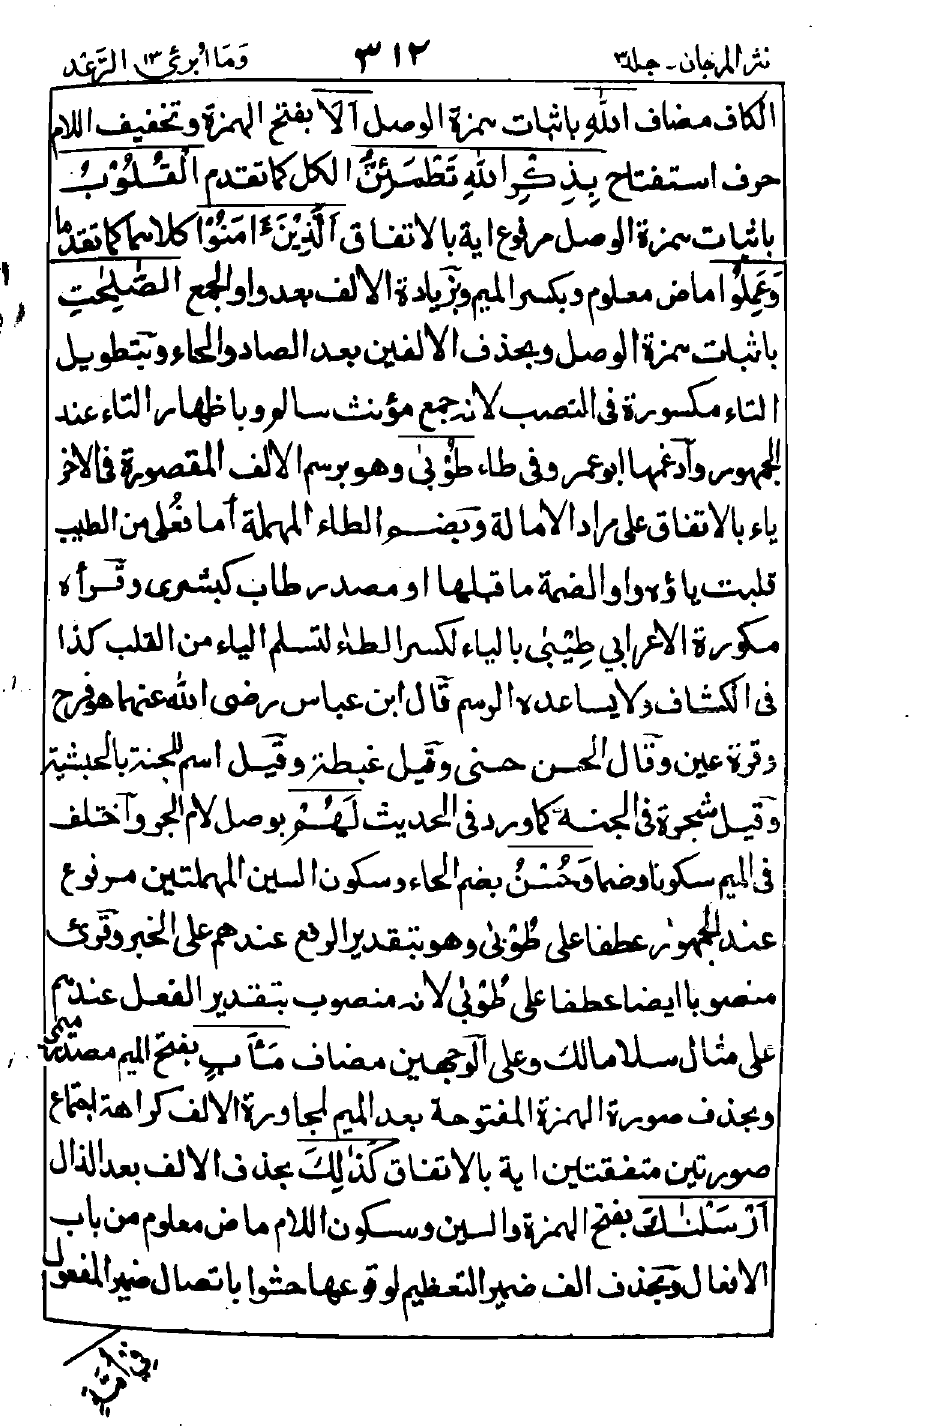 نثر المرجان - جلد ٣ ٣١٢ وَمَا أُبَرِّئُ ١٣ الرَّعْد
الكاف مضاف اللهِ باثبات همزة الوصل اَلَا بفتح الهمزة وتخفيف اللام
حرف استفتاح بِذِكْرِ اللهِ تَطْمَئِنُّ الكل كما تقدم الْقُلُوْبُ
باثبات همزة الوصل مرفوع اية بالاتفاق اَلَّذِيْنَ ءَامَنُوْا كلاهما كما تقدما
وَعَمِلُوْا ماض معلوم وبكسر الميم وبزيادة الالف بعد واو الجمع الصّٰلِحٰتِ
باثبات همزة الوصل وبحذف الالفين بعد الصاد والحاء وبتطويل
التاء مكسورة فى النصب لانه جمع مؤنث سالم وباظهار التاء عند
الجمهور وادغمها ابو عمر وفى طاء طُوْبٰى وهو برسم الالف المقصورة فى الاخر
ياء بالاتفاق على مراد الامالة وبضم الطاء المهملة اما فُعْلى من الطيب
قلبت ياؤه واوا لضمة ما قبلها او مصدر طاب كبشرى وقرأه
مكوزة الاعرابي طِيْبٰى بالياء لكسر الطاء لتسلم الياء من القلب كذا
فى الكشاف ولا يساعده الرسم قال ابن عباس رضى الله عنهما هو فرح
وقرة عين وقال الحسن حسنى وقيل غبطة وقيل اسم للجنة بالحبشية
وقيل شجرة فى الجنة كما ورد فى الحديث لَهُمْ بوصل لام الجر واختلف
فى الميم سكونا وضما وَحُسْنُ بضم الحاء وسكون السين المهملتين مرفوع
عند الجمهور عطفا على طُوْبٰى وهو بتقدير الرفع عندهم على الخبر وقرئ
منصوبا ايضا عطفا على طُوْبٰى لانه منصوب بتقدير الفعل عندهم
على مثال سلاما لك وعلى الوجهين مضاف مَـَٔابٍ بفتح الميم مصدر ميمى
وبحذف صورة الهمزة المفتوحة بعد الميم لمجاورة الالف كراهة اجتماع
صورتين متفقتين اية بالاتفاق كَذٰلِكَ بحذف الالف بعد الذال
اَرْسَلْنٰكَ بفتح الهمزة والسين وسكون اللام ماض معلوم من باب
الافعال وبحذف الف ضمير التعظيم لوقوعها حشوا باتصال ضمير المفعول
فِيْ اُمَّةٍ